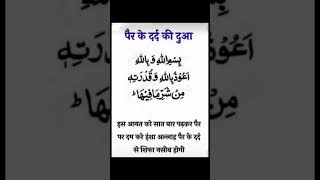 पैर के दर्द की दुआ
بِسْمِ اللهِ وَ بِاللهِ
اَعُوْذُ بِاللهِ وَ قُدْرَتِهٖ
مِنْ شَرِّ مَا فِيْهَا ؕ
इस आयत को सात बार पढ़कर पैर
पर दम करे इंशा अल्लाह पैर के दर्द
से शिफा नसीब होगी